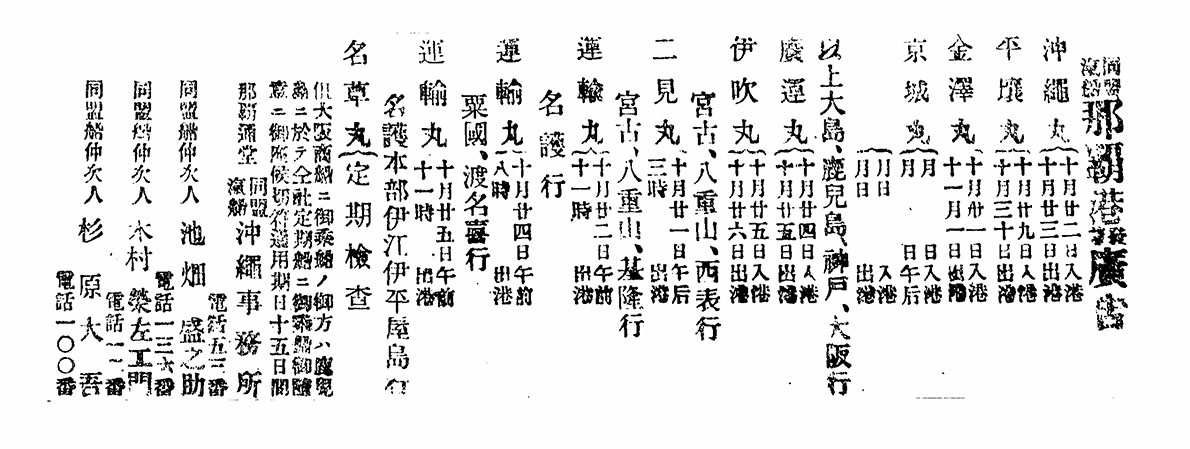 同盟汽船那覇港發廣告
沖繩丸 十月廿二日入港 十月廿三日出港
平壤丸 十月廿九日入港 十月三十日出港
金澤丸 十月卅一日入港 十一月一日出港
京城丸 月 日入港 月 日午后
月日 入港 出港
以上大島、鹿兒島、神戸、大阪行
慶運丸 十月廿四日入港 十月廿五日出港
伊吹丸 十月廿五日入港 十月廿六日出港
宮古、八重山、西表行
二見丸 十月廿一日午后三時出港
宮古、八重山、基隆行
運輸丸 十月廿二日午前十一時出港
名護行
運輸丸 十月廿四日午前八時出港
粟國、渡名喜行
運輸丸 十月廿五日午前十一時出港
名護本部伊江伊平屋島行
名草丸 定期檢查
但大阪商船ニ御乘船ノ御方ハ鹿兒
島ニ於テ仝社定期船ニ御乘船御隨
意ニ御座候切符通用期日十五日間
那覇通堂 同盟汽船 沖繩事務所
電話五三番
同盟船仲次人 池畑盛之助
電話一三六番
同盟船仲次人 木村榮左工門
電話一一番
同盟船仲次人 杉原大吾
電話一〇〇番